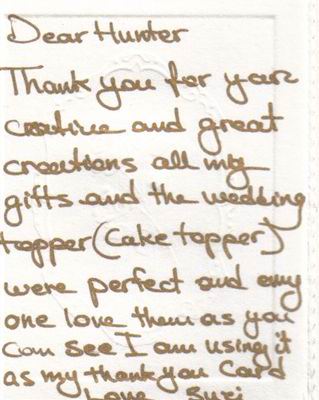 Dear Hunter
Thank you for your
creative and great
creations all my
gifts and the wedding
topper (cake topper)
were perfect and any
one love them as you
can see I am using it
as my thank you card
Love Suzi